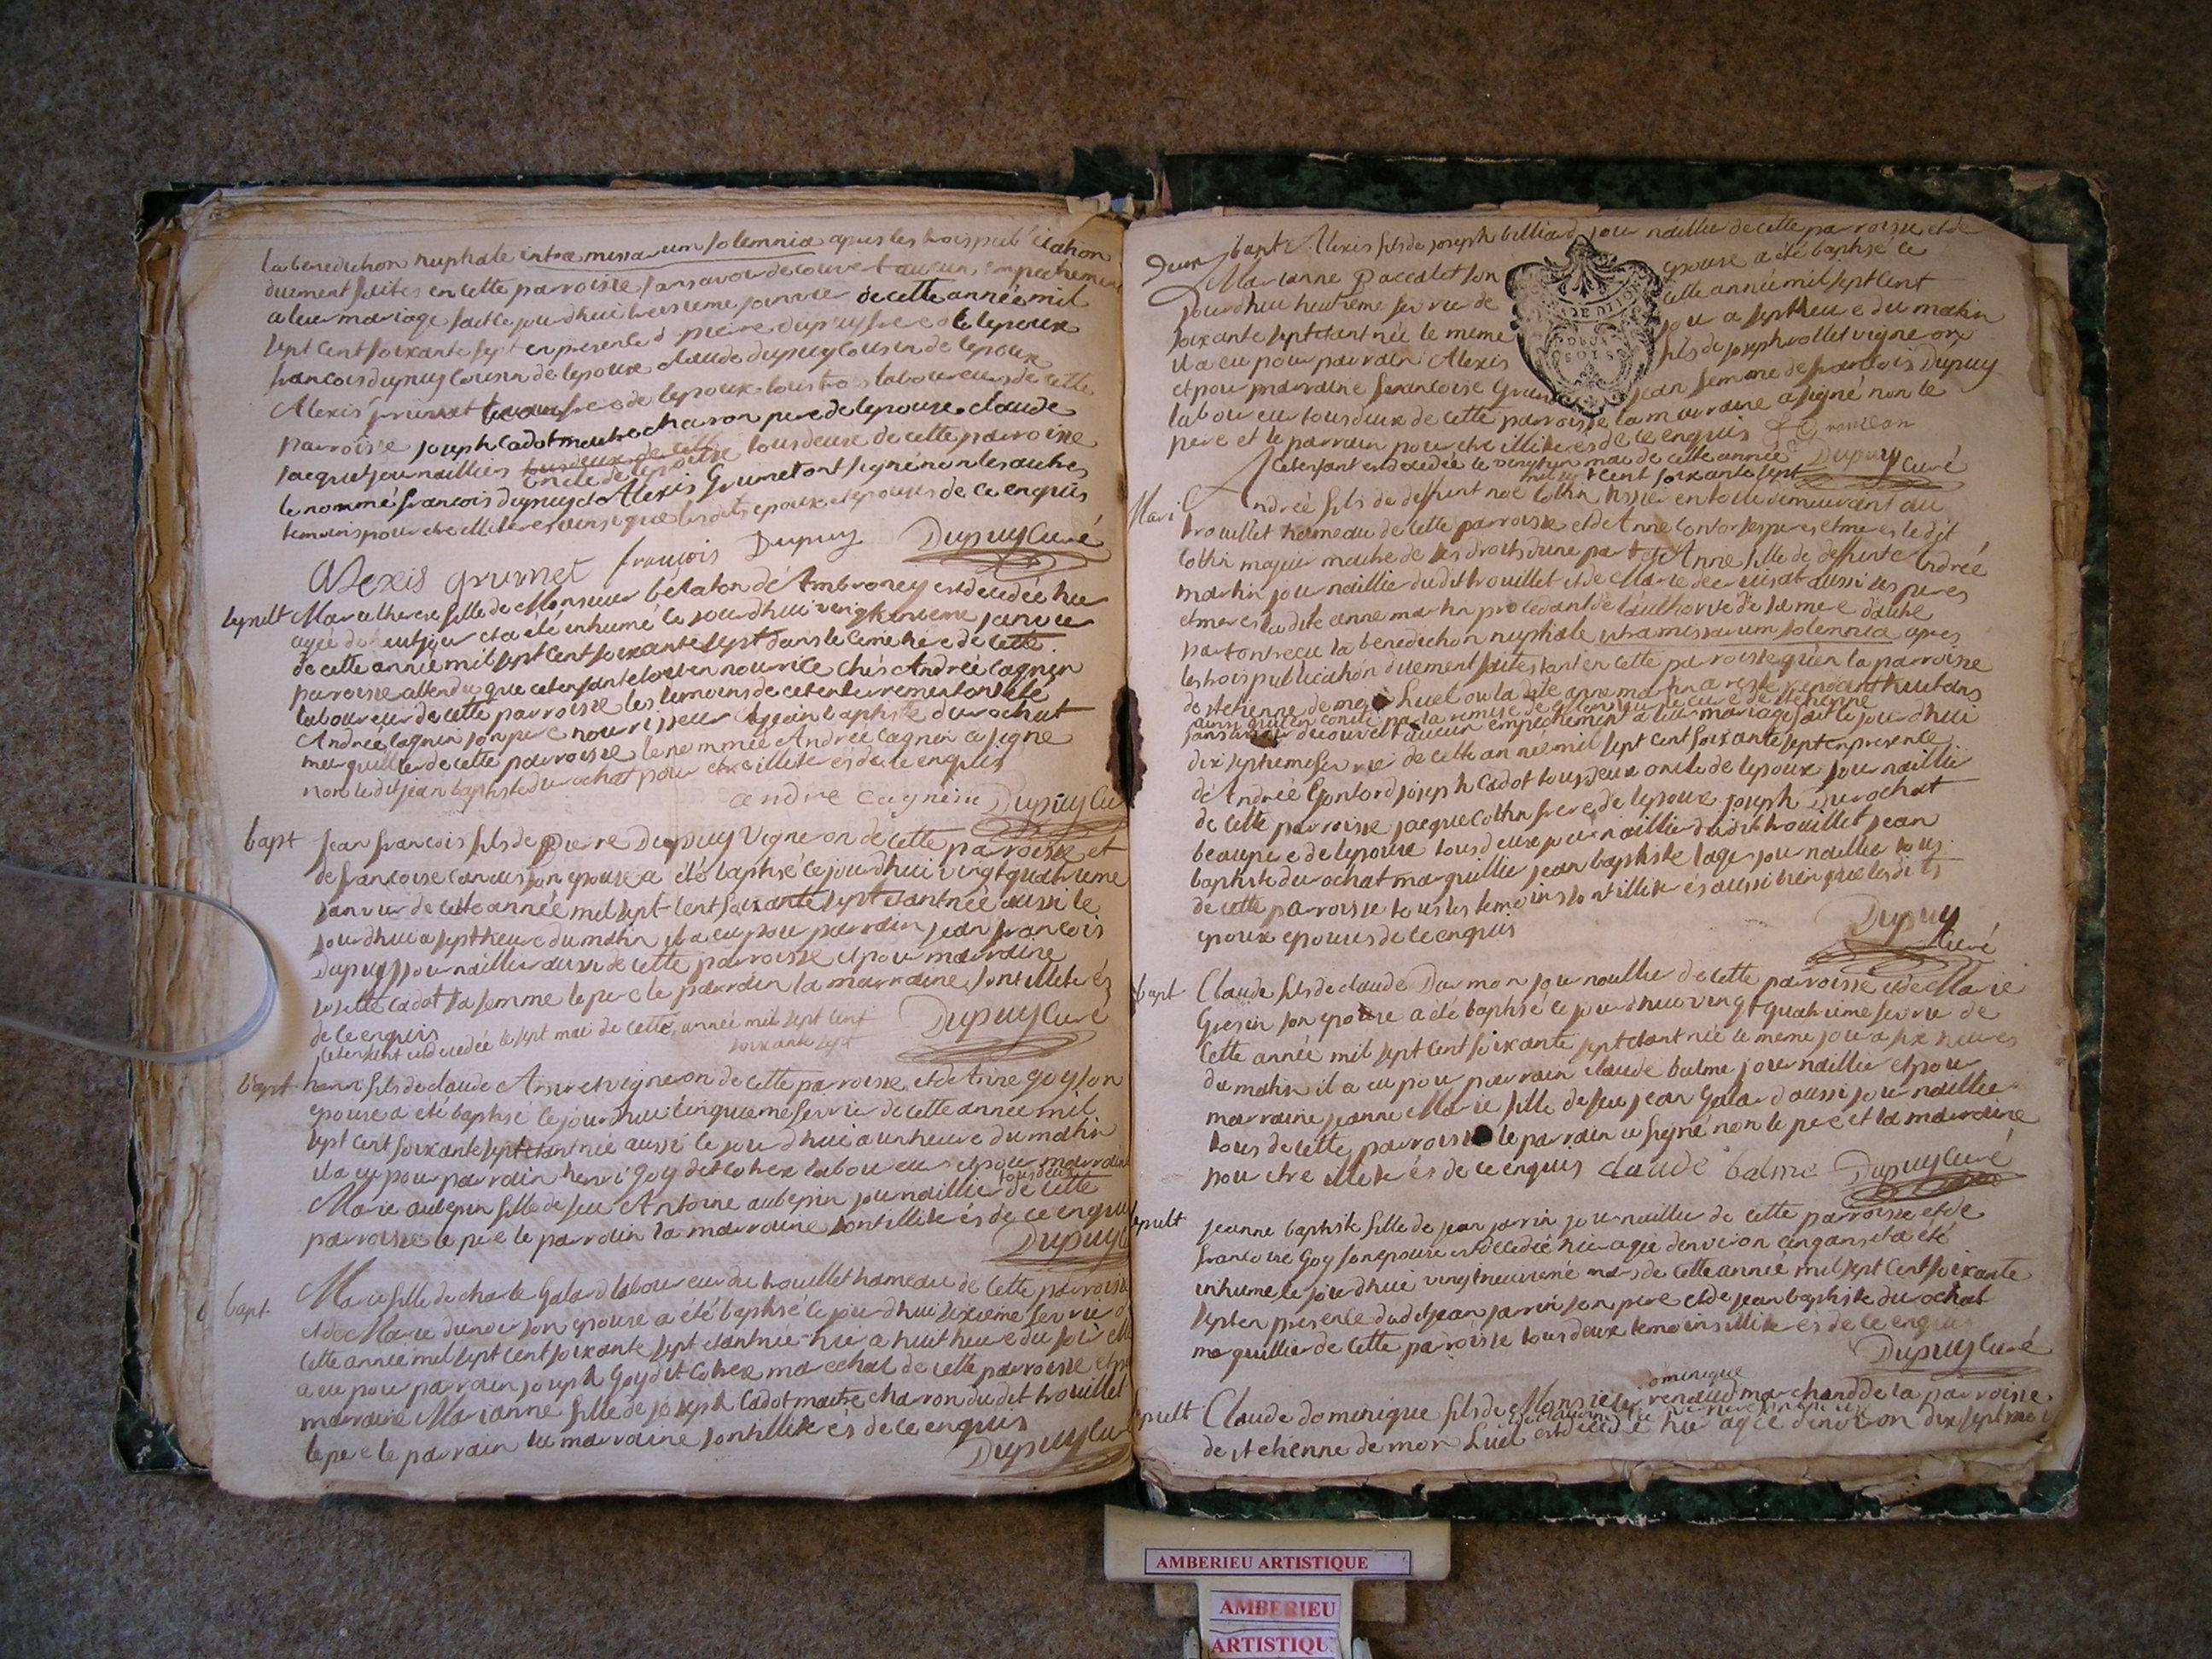 la benediction nuptiale intra missarum solemnia apres les trois publication
duement faites en cette parroisse sans avoir decouvert aucun empechement
a leur mariage fait le jourdhui troisieme janvier de cette année mil
sept cent soixante sept en presence d pierre dupuy frere de lepoux
francois dupuy cousin de lepoux claude dupuy cousin de lepoux
Alexis frere de lepoux tous trois laboureurs de cette
parroisse joseph Cadot maitre charon pere de lepouse claude
jaequet journaillier oncle de lepouse tous deux de cette parroisse
le nommé francois dupuy et Alexis Grumet ont signé non les autres
temoins pour etre illiterés ainsi que les dits epoux et epouse de ce enquis
Alexis grumet francois Dupuy Dupuy Curé
sepult Marie therese fille de Monsieur belaton de Ambroney est decedée hier
agée de huit jour et a été inhumé le jourdhui janvier
de cette année mil sept cent soixante sept dans le cemetiere de cette
parroisse attendu que cet enfant etoit en nourrice chés Andrée Cagnin
laboureur de cette parroisse les temoins de cet enterrement ont été
Andrée Cagnin son pere nourrisseur et jean baptiste durochat
marguillier de cette parroisse le nommée Andrée Cagnin a signé
non le dit jean baptiste durochat pour etre illiterés de ce enquis
andre Cagnin Dupuy Cu
bapt jean francois fils de Pierre Dupuy Vigneron de cette parroisse et
de francoise son epouse a été baptisé le jourdhui vingt quatrieme
janvier de cette année mil sept cent soixante sept etant née aussi le
jourdhui a sept heure du matin il a eu pour parrain jean francois
Dupuy journaillier aussi de cette parroisse et pour marraine
Cadot sa femme le pere le parrain la marraine sont illiterés
de ce enquis Dupuy Curé
cet enfant est decedée le sept mai de cette année mil sept cent
soixante sept
bapt henri fils de claude vigneron de cette parroisse et de Anne goy son
epouse a été baptisé le jourdhui cinquieme fevrier de cette année mil
sept cent soixante sept etant née aussi le jourdhui a un heure du matin
il a eu pour parrain henri Goy dit Cohex laboureur et pour marraine
Marie aubepin fille de feu Antoine aubepin journaillier tous de cette
parroisse le pere le parrain la marraine sont illiterés de ce enquis
Dupuy C
bapt. Marie fille de charle Galard laboureur du trouillet hameau de cette parroisse
et de Marie dunoir son epouse a été baptisé le jourdhui sixieme fevrier d
cette année mil sept cent soixante sept etant née hier a huit heure du soir elle
a eu pour parrain joseph Goy dit Cohex marechal de cette parroisse et p
marraine Marianne fille de joseph Cadot maitre charon du dit trouillet
le pere le parrain la marraine sont illiterés de ce enquis
Dupuy Cu
bapt. Alexis fils de joseph billiard journaillier de cette parroisse et de
Marianne Paccalet son epouse a été baptisé le
jourdhui huitieme fevrier de cette année mil sept cent
soixante sept etant née le meme jour a sept heure du matin
il a eu pour parrain Alexis fils de joseph vollet vigneron
et pour marraine francoise Grumean femme de francois Dupuy
laboureur tous deux de cette parroisse la marraine a signé non le
pere et le parrain pour etre illiterés de ce enquis
cet enfant est decedée le vingt un mai de cette année Dupuy Curé
mil sept cent soixante sept
Mari. Andrée fils de deffunt noé Cottin demeurant au
trouillet hameau de cette parroisse et de Anne Contor ses pere et mere le dit
Cottin majeur maitre de ses droits d'une part et Anne fille de deffunte Andrée
martin journaillier du dit trouillet et de Marie aussi ses peres
et meres la dite anne martin procedant de l'authorité de sa mere d'autre
part ont recu la benediction nuptiale intra missarum solemnia apres
les trois publication duement faites tant en cette parroisse qu'en la parroisse
de st etienne de mon Luel ou la dite anne martin a resté pendant huit ans
ainsi qu'il en conste par la remise de Mr le curé de st etienne
sans avoir decouvert aucun empechement a leur mariage fait le jourdhui
dix septieme fevrier de cette année mil sept cent soixante sept en presence
de Andrée Gontord joseph Cadot tous deux oncle de lepoux journaillier
de cette parroisse jacque Cottin frere de lepoux joseph Durochat
beaupere de lepouse tous deux journaillier du dit trouillet jean
baptiste durochat marguillier jean baptiste lage journaillier tous
de cette parroisse tous les temoins sont illiterés aussi bien que les dits
epoux epouses de ce enquis
Dupuy
Curé
bapt Claude fils de claude Darmon journaillier de cette parroisse et de Marie
Gresin son epouse a été baptisé le jourdhui vingt quatrieme fevrier de
cette année mil sept cent soixante sept etant née le meme jour a six heures
du matin il a eu pour parrain claude balme journaillier et pour
marraine jeanne Marie fille de feu jean Galard aussi journaillier
tous de cette parroisse le parrain a signé non le pere et la marraine
pour etre illiterés de ce enquis claude balme Dupuy Curé
sepult jeanne baptiste fille de jean jarrin journaillier de cette parroisse et de
francoise Goy son epouse est decedée hier agée d'environ cinq ans et a été
inhumé le jourdhui vingt neuvieme mars de cette année mil sept cent soixante
sept en presence du dit jean jarrin son pere et de jean baptiste durochat
marguillier de cette parroisse tous deux temoins illiterés de ce enquis
Dupuy Curé
dominique
sepult Claude dominique fils de Monsieur renaud marchand de la parroisse
de st etienne de mon Luel est decedé hier agée d'environ dix sept moi
AMBERIEU ARTISTIQUE
AMBERIEU
ARTISTIQU